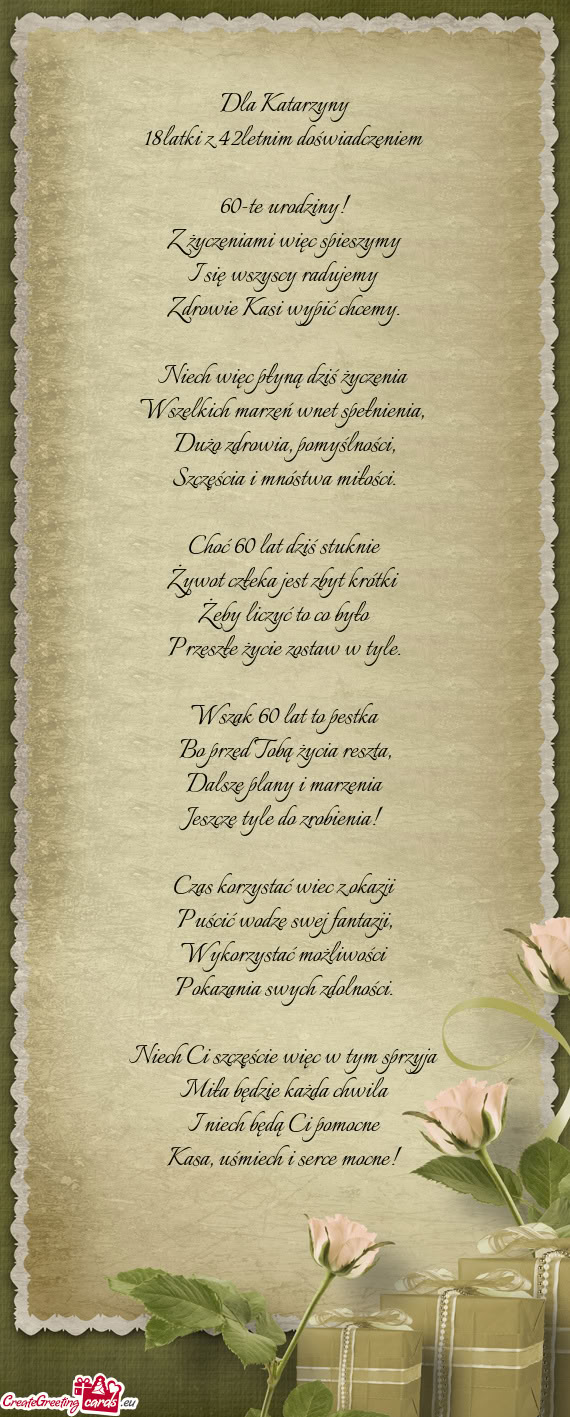 Dla Katarzyny
18latki z 42letnim doświadczeniem
60-te urodziny!
Z życzeniami więc spieszymy
I się wszyscy radujemy
Zdrowie Kasi wypić chcemy.
Niech więc płyną dziś życzenia
Wszelkich marzeń wnet spełnienia,
Dużo zdrowia, pomyślności,
Szczęścia i mnóstwa miłości.
Choć 60 lat dziś stuknie
Żywot człeka jest zbyt krótki
Żeby liczyć to co było
Przeszłe życie zostaw w tyle.
Wszak 60 lat to pestka
Bo przed Tobą życia reszta,
Dalsze plany i marzenia
Jeszcze tyle do zrobienia!
Czas korzystać wiec z okazji
Puścić wodze swej fantazji,
Wykorzystać możliwości
Pokazania swych zdolności.
Niech Ci szczęście więc w tym sprzyja
Miła będzie każda chwila
I niech będą Ci pomocne
Kasa, uśmiech i serce mocne!
CreateGreeting cards .eu